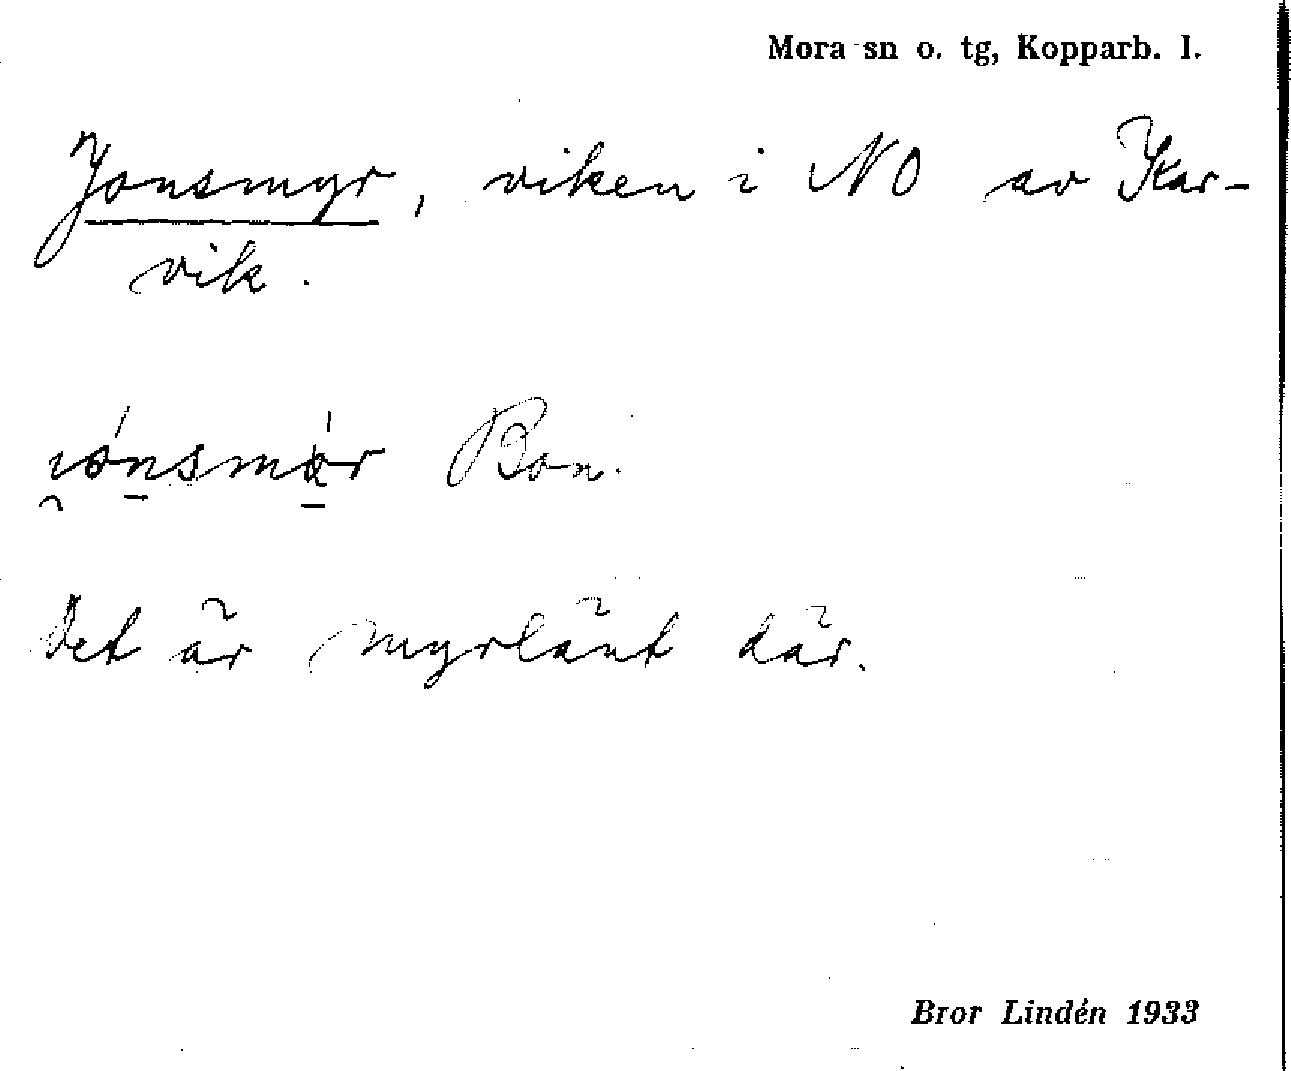 Mora sn o. tg, Kopparb. l.
Jonsmyr, viken i NO av
vik.
Bon.
Det är myrlänt där.
Bror Lindén 1933